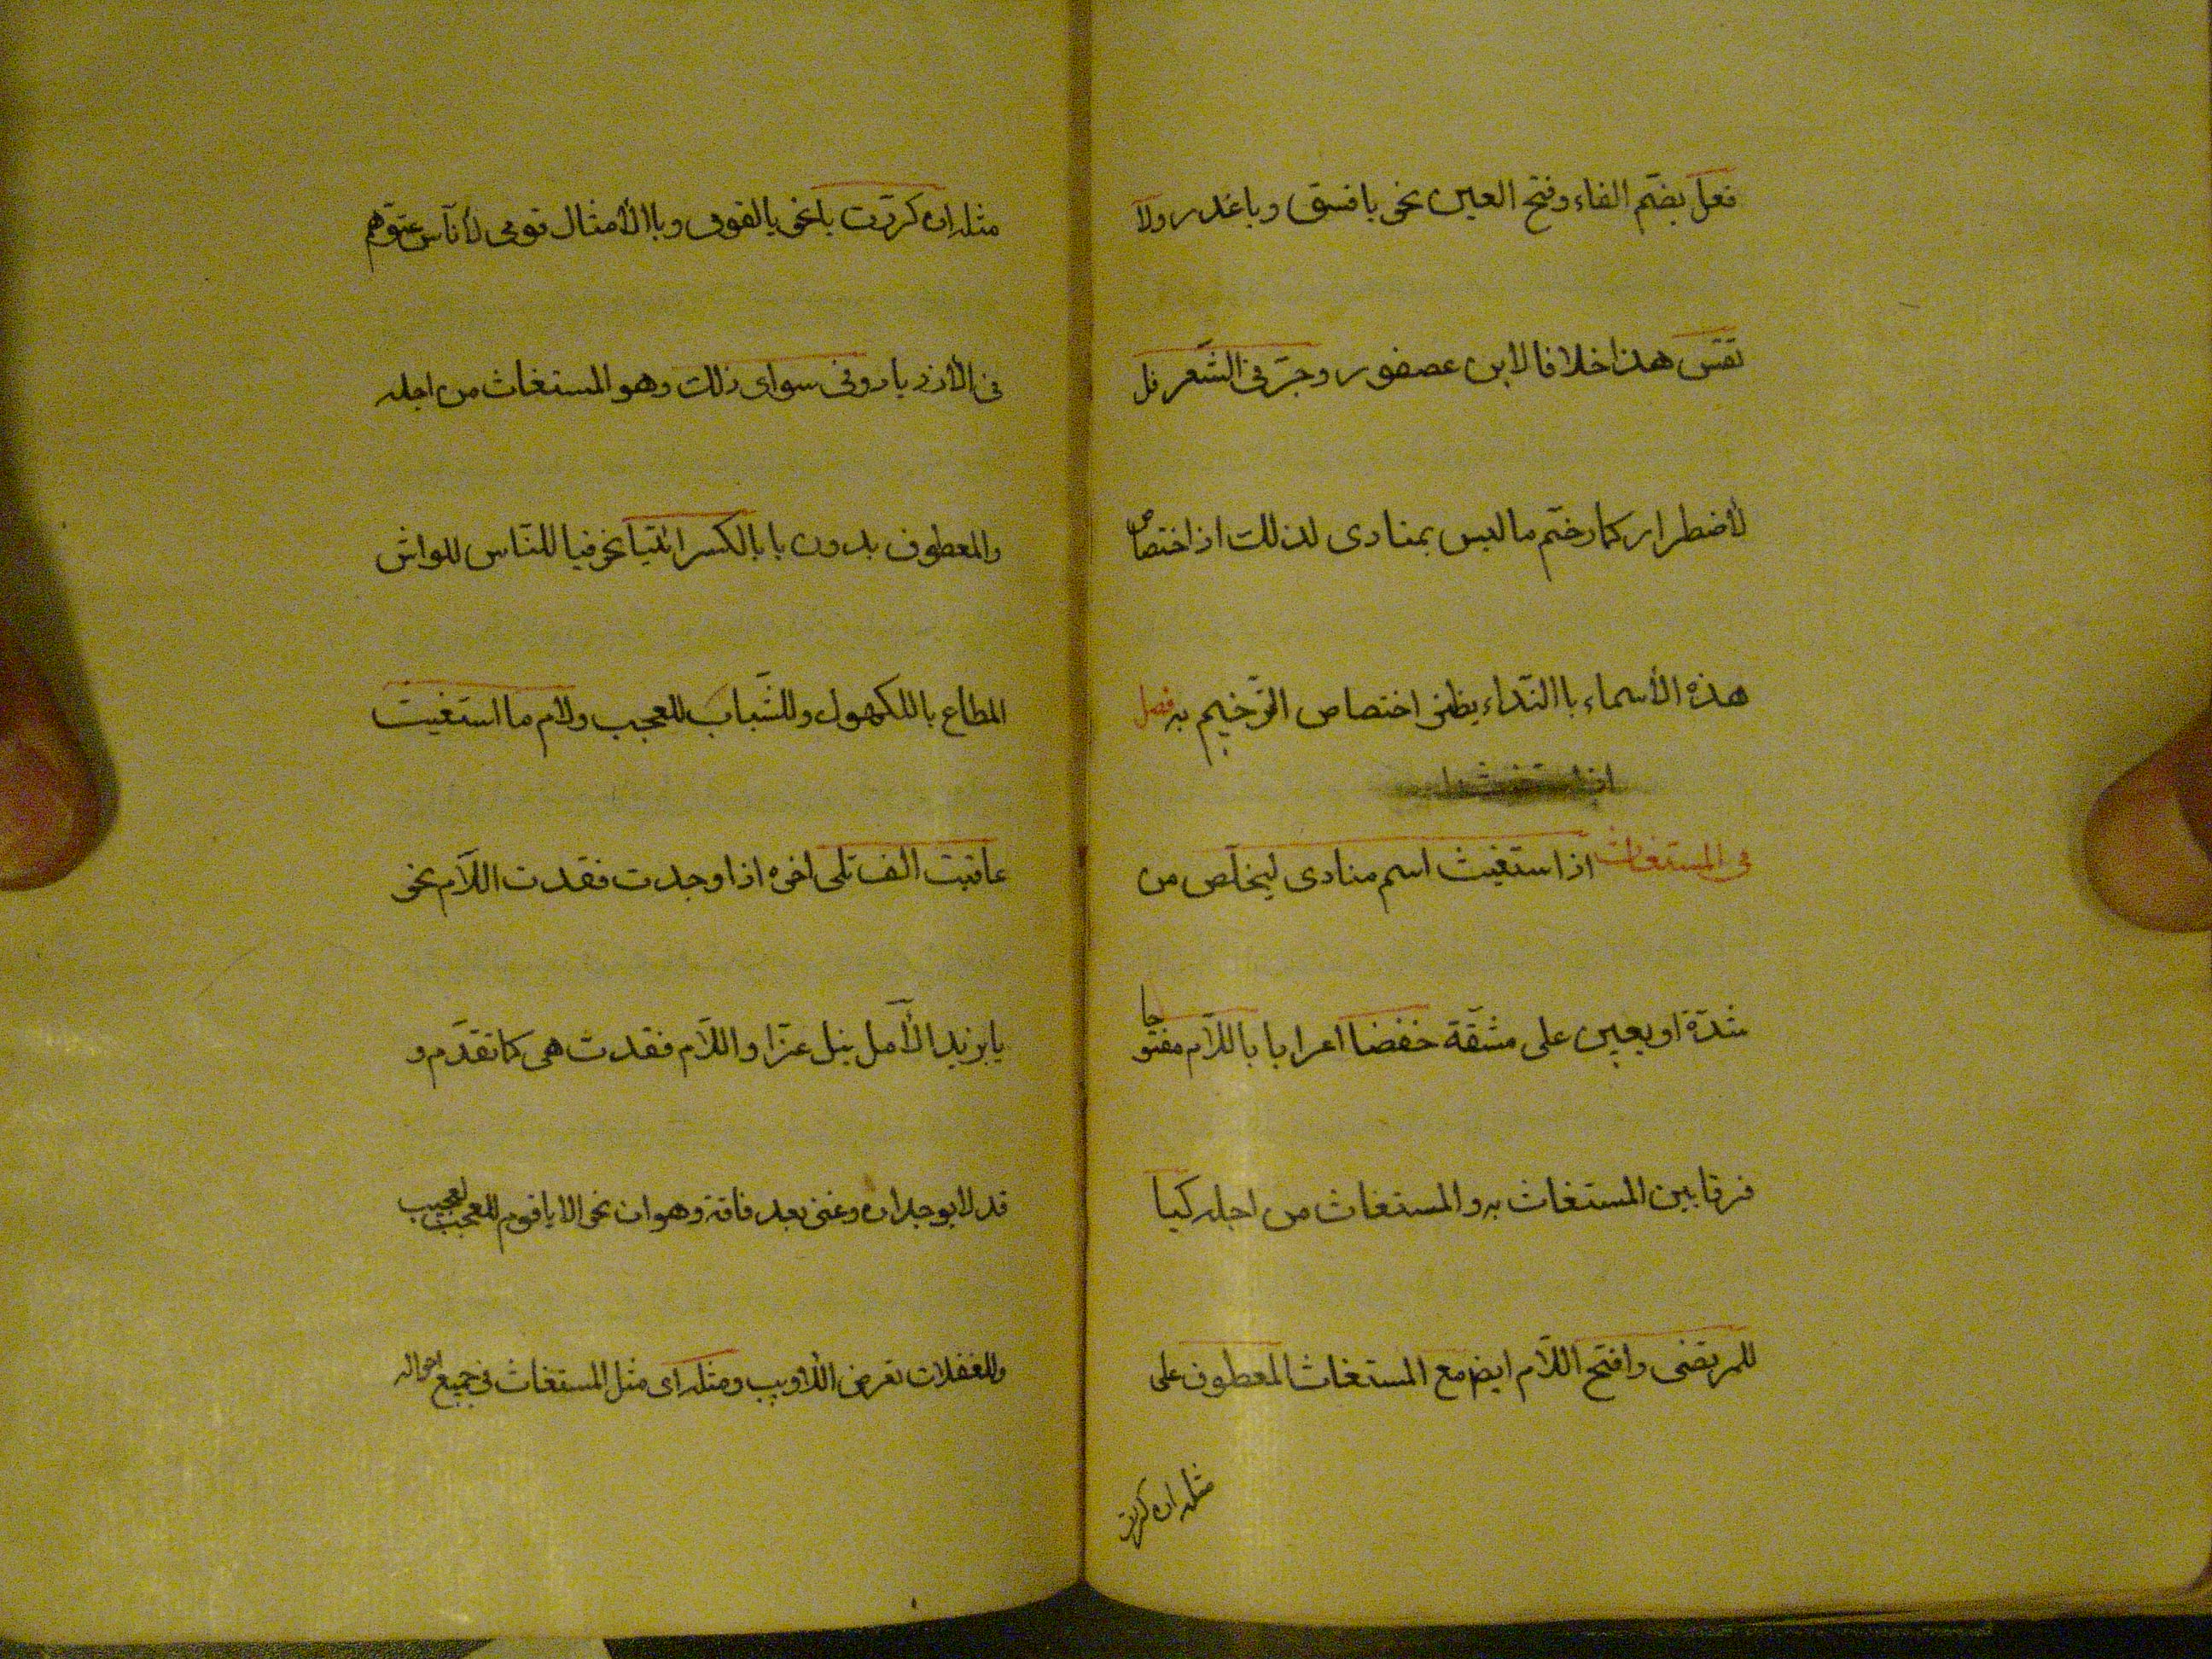 فعل بضمّ الفاء وفتح العين نحو يا فسق و يا غدر ولا
تقس هذا خلافا لابن عصفور وجرّ فى الشّعر فل
لأضطرار كما رخّم ما ليس بمنادى لذلك اذ اختصاص
هذه الأسماء باالنّداء نظير اختصاص التّرخيم به فصل
فى المستغاث اذا ستغيث اسم منادى ليخلّص من
شدّة او يعين على مشقّة خفضا اعرابا باللّام مفتوحا
فرقا بين المستغاث به والمستغاث من اجله كيا
للمرتضى وافتح اللّام ايضا مع المستغاث المعطوف على
مثله ان كررت
مثله ان كرّرت يا نحو يا لقومى و ياالأمثال قومى لأناس عتوّهم
فى الأزدياد وفى سواى ذلك وهو المستغاث من اجله
والمعطوف بدون يا بالكسر ائتيا نحو فيا للنّاس للواشى
المطاع ياللكهول وللشّباب للعجب ولام ما استغيث
عاقبت الف تلى اخره اذا وجدت فقدت اللّام نحو
يا يزيدا لآمل نيل عزّ او اللّام فقدت هى كما تقدّم و
قد لا يوجدان وغنى بعد فاقة وهوان نحو الا يا قوم للعجب لعجيب
وللغفلات تعرض اللأديب ومثله اى مثل المستغاث فى جميع احواله